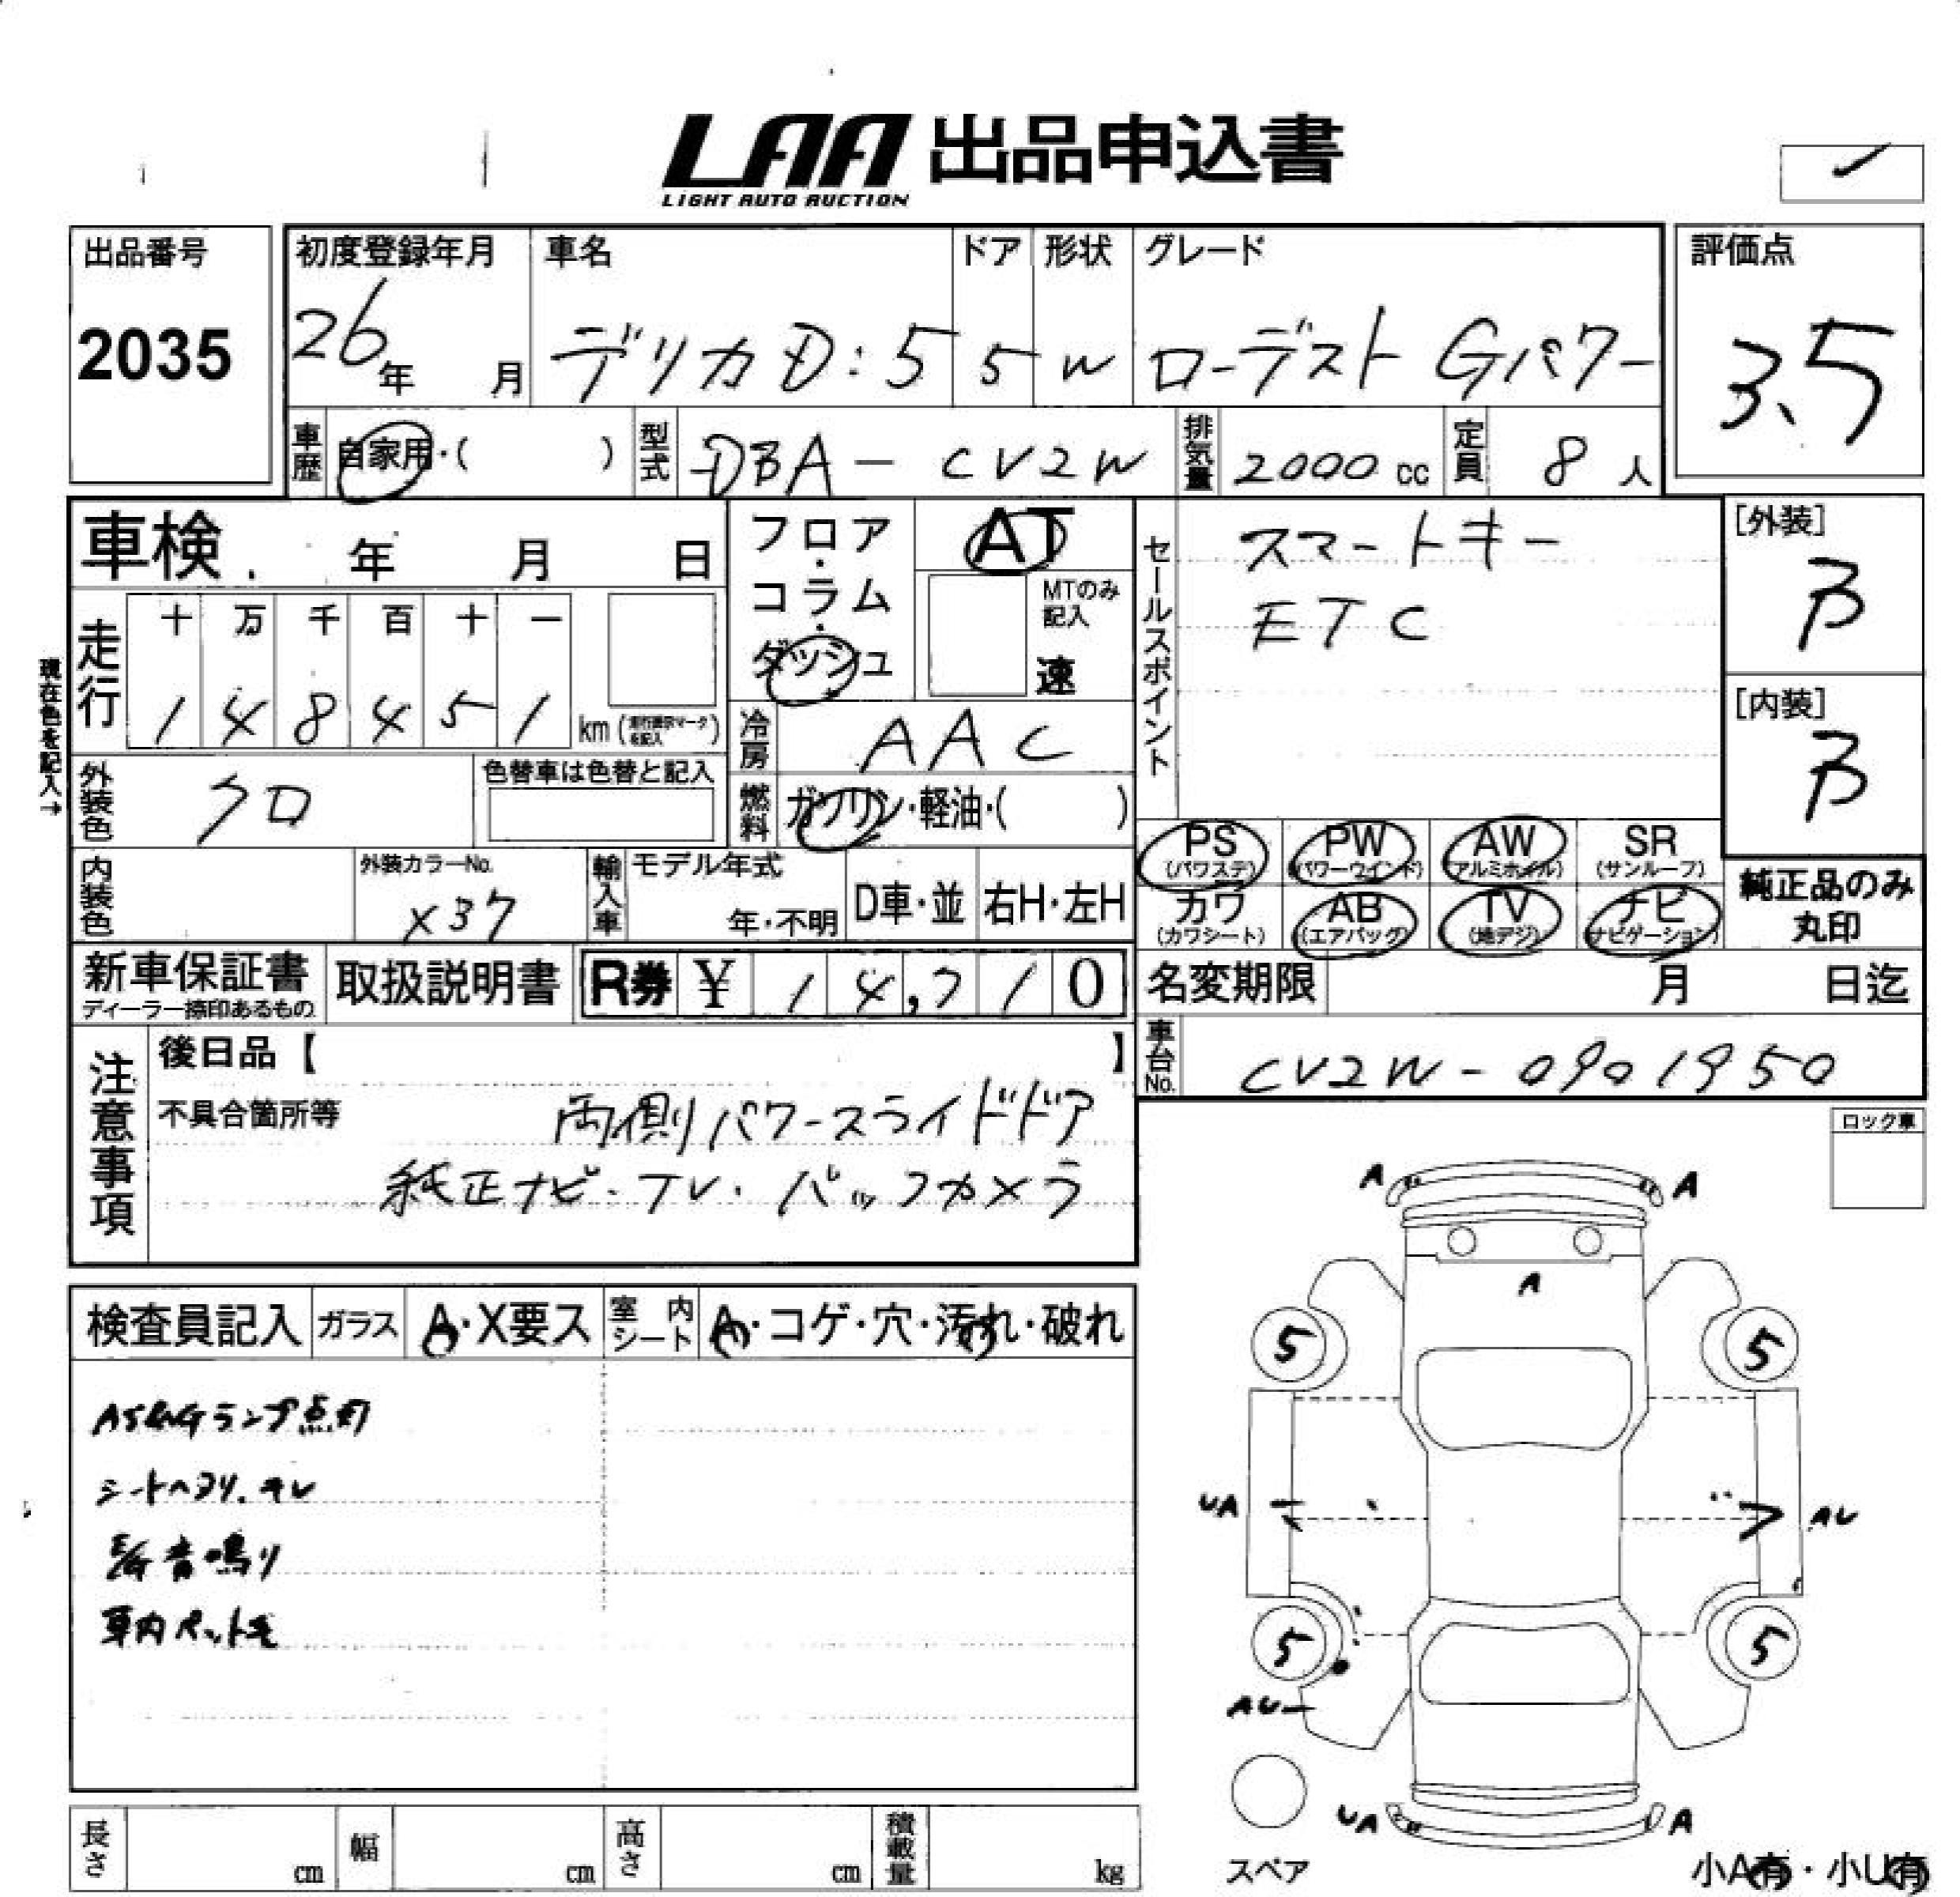 LAA 出品申込書
LIGHT AUTO AUCTION
出品番号
2035
初度登録年月
26年 月
車名
デリカD:5
ドア
5
形状
W
グレード
ローデスト Gパワー
評価点
3.5
車歴 自家用・( )
型式 DBA-CV2W
排気量 2000 cc
定員 8 人
車検 年 月 日
フロア・コラム・ダッシュ
AT
MTのみ記入
速
セールスポイント
スマートキー
ETC
[外装]
B
[内装]
B
現在色を記入→
走行
十 万 千 百 十 一
1 4 8 4 5 1 km
冷房 AAC
外装色 クロ
色替車は色替と記入
燃料 ガソリン・軽油・( )
PS (パワステ)
PW (パワーウインド)
AW (アルミホイル)
SR (サンルーフ)
カワ (カワシート)
AB (エアバッグ)
TV (地デジ)
ナビ (ナビゲーション)
純正品のみ丸印
内装色
外装カラーNo.
X37
輸入車
モデル年式
年・不明
D車・並
右H・左H
新車保証書
ディーラー捺印あるもの
取扱説明書
R券 ¥ 14,710
名変期限 月 日迄
車台No. CV2W-0901950
注意事項
後日品【 】
不具合箇所等
両側パワースライドドア
純正ナビ・TV・バックカメラ
ロック車
検査員記入
ガラス A・X要ス
室内シート A・コゲ・穴・汚れ・破れ
ランプ点灯
シートヘタリ、キレ
音鳴り
車内ペット毛
A A
A
5 5
UA AU
5 5
AU
UA A
スペア
小A有・小U有
長さ cm
幅 cm
高さ cm
積載量 kg